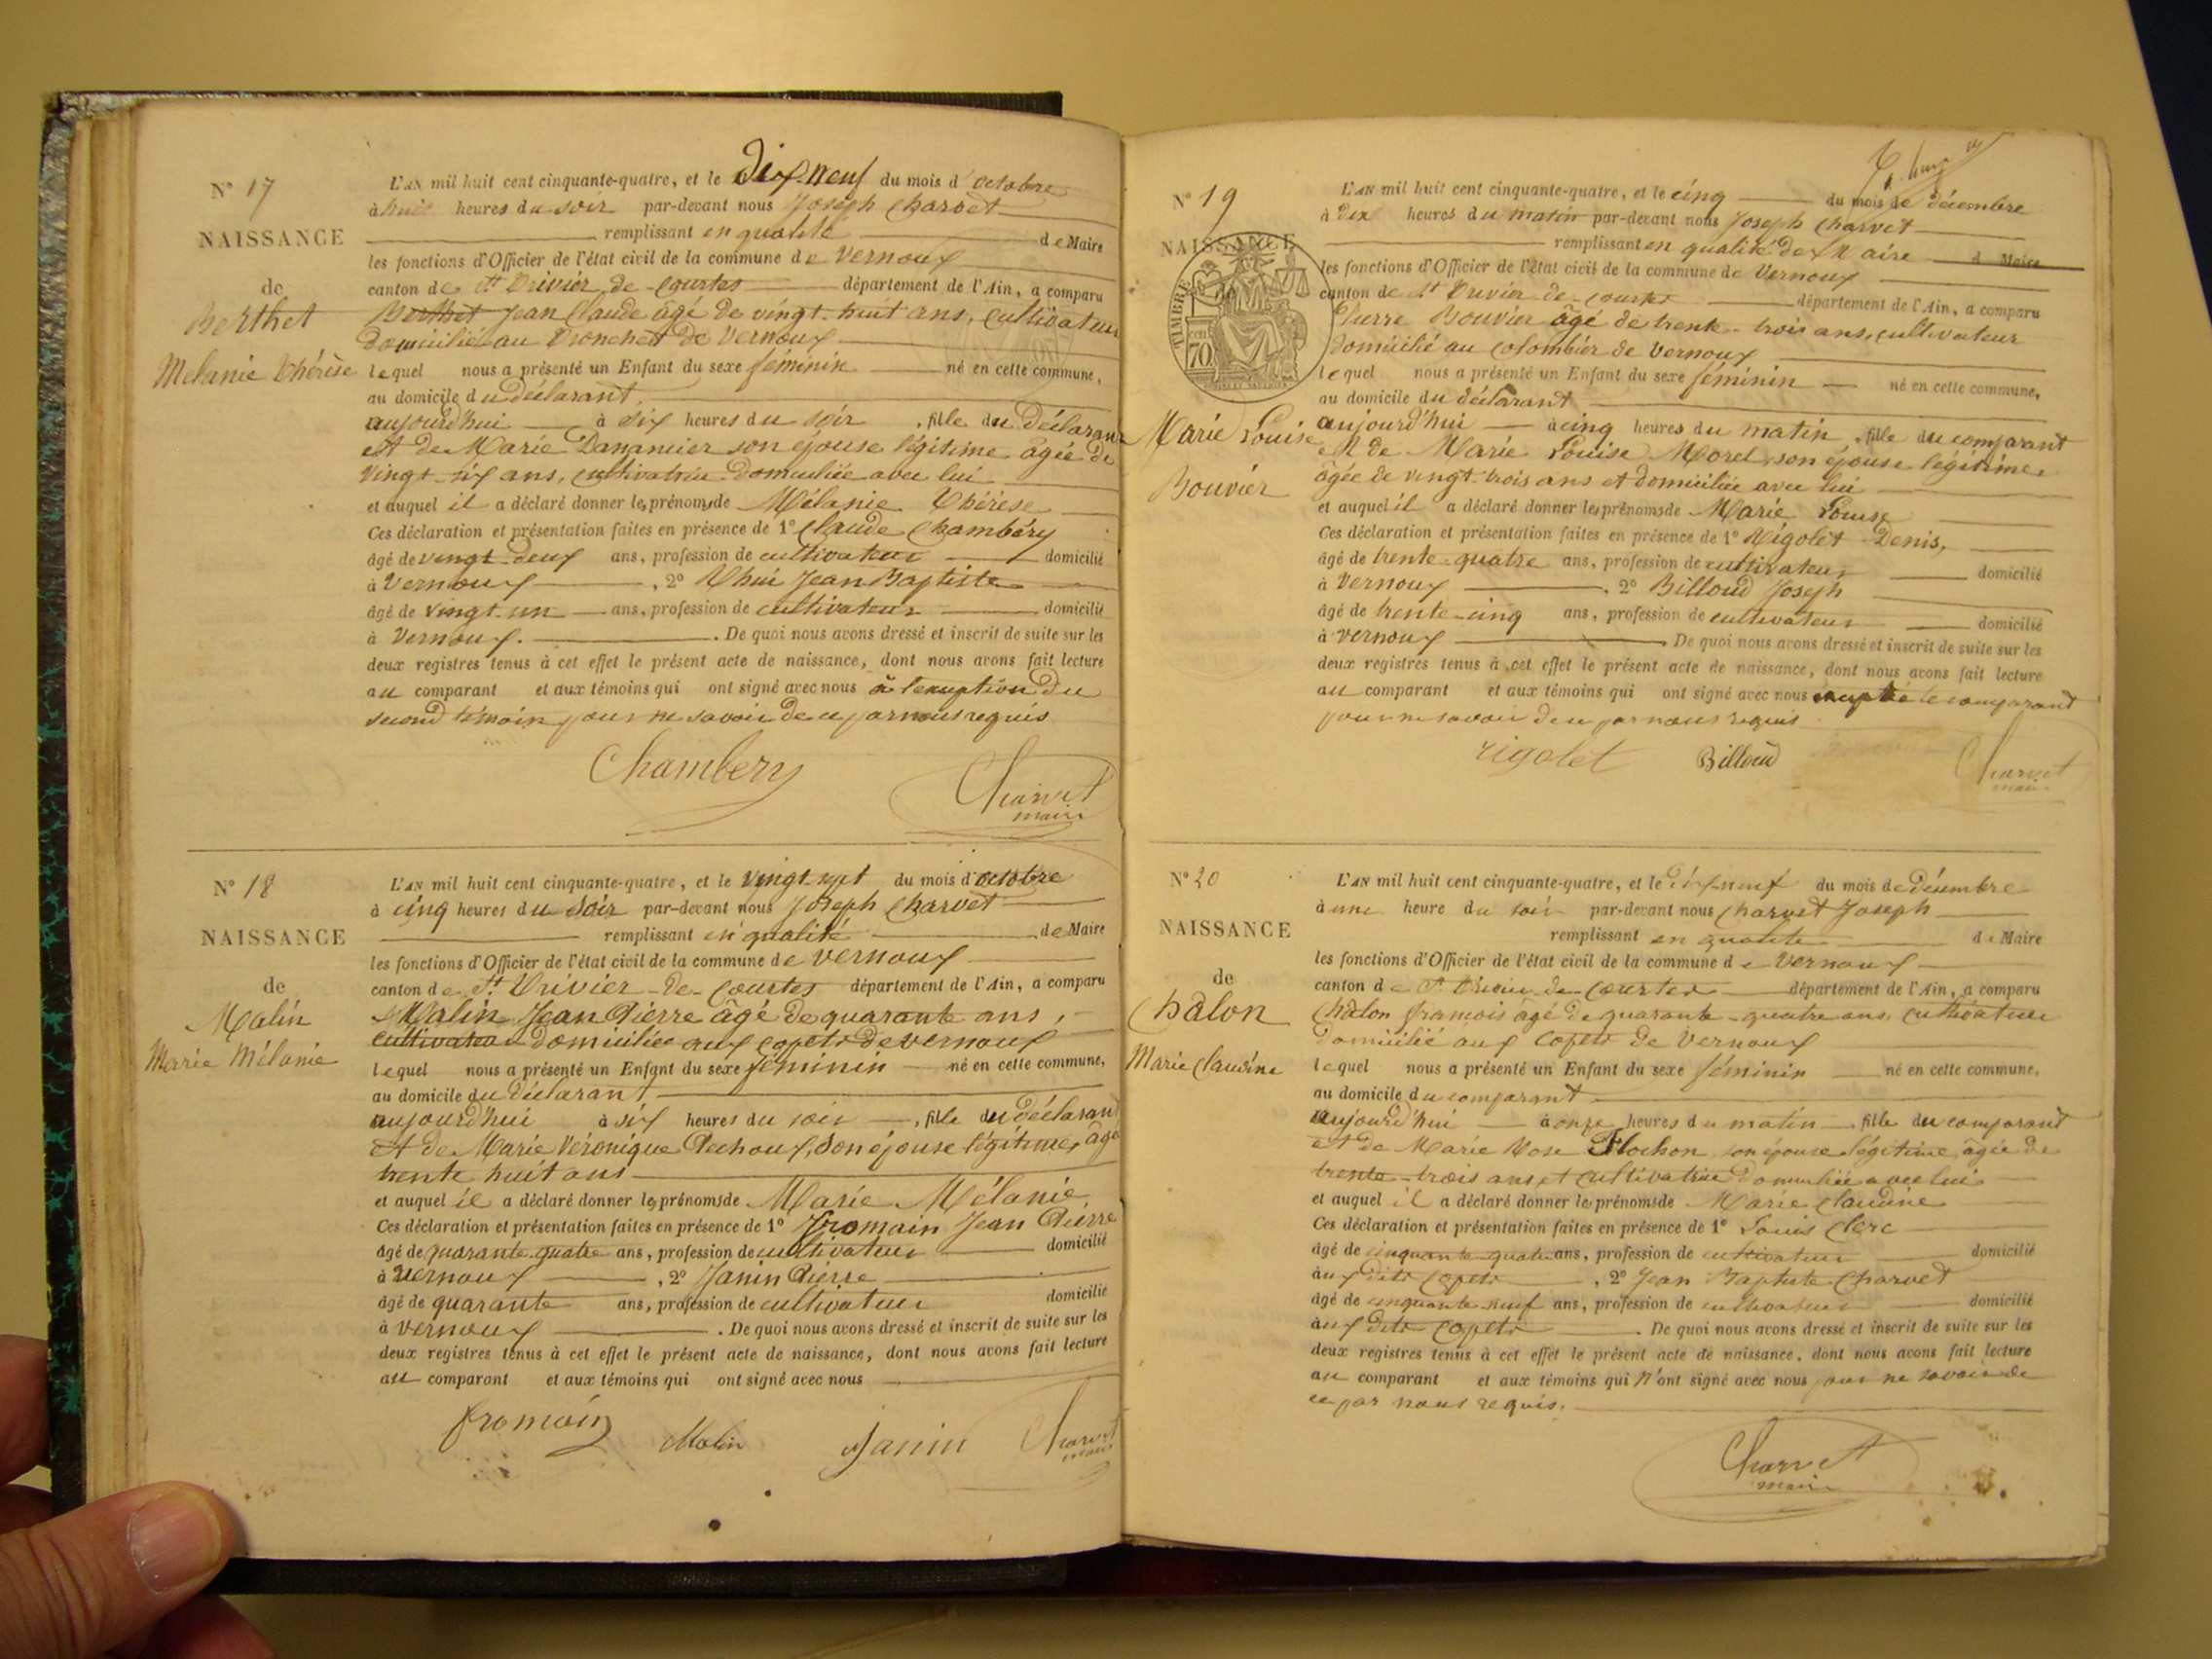 N° 17
NAISSANCE
de
Berthet
Mélanie Thérèse
L'AN mil huit cent cinquante-quatre, et le Dix-neuf du mois d'octobre
à huit heures du soir par-devant nous Joseph Charvet
remplissant en qualité de Maire
les fonctions d'Officier de l'état civil de la commune de Vernoux
canton de St Trivier de Courtes département de l'Ain, a comparu
Berthet Jean Claude âgé de vingt-huit ans, cultivateur
domicilié au Tronchet de Vernoux
lequel nous a présenté un Enfant du sexe féminin né en cette commune,
au domicile du déclarant,
aujourd'hui à six heures du soir, fille du déclarant
et de Marie Danancier son épouse légitime âgée de
vingt-six ans, cultivatrice domiciliée avec lui
et auquel il a déclaré donner les prénoms de Mélanie Thérèse
Ces déclaration et présentation faites en présence de 1° Claude Chambéry
âgé de vingt-deux ans, profession de cultivateur domicilié
à Vernoux, 2° Thui Jean Baptiste
âgé de vingt-un ans, profession de cultivateur domicilié
à Vernoux. De quoi nous avons dressé et inscrit de suite sur les
deux registres tenus à cet effet le présent acte de naissance, dont nous avons fait lecture
au comparant et aux témoins qui ont signé avec nous à l'exception du
second témoin pour ne savoir de ce par nous requis
Chambery
Charvet
maire
N° 18
NAISSANCE
de
Malin
Marie Mélanie
L'AN mil huit cent cinquante-quatre, et le vingt-sept du mois d'octobre
à cinq heures du soir par-devant nous Joseph Charvet
remplissant en qualité de Maire
les fonctions d'Officier de l'état civil de la commune de Vernoux
canton de St Trivier-de-Courtes département de l'Ain, a comparu
Malin Jean Pierre âgé de quarante ans,
cultivateur domiciliée aux Copets de Vernoux
lequel nous a présenté un Enfant du sexe féminin né en cette commune,
au domicile du déclarant
aujourd'hui à six heures du soir, fille du déclarant
et de Marie Véronique Pechoux, son épouse légitime, âgé
trente huit ans
et auquel il a déclaré donner les prénoms de Marie Mélanie
Ces déclaration et présentation faites en présence de 1° Fromain Jean Pierre
âgé de quarante-quatre ans, profession de cultivateur domicilié
à Vernoux, 2° Janin Pierre
âgé de quarante ans, profession de cultivateur domicilié
à Vernoux. De quoi nous avons dressé et inscrit de suite sur les
deux registres tenus à cet effet le présent acte de naissance, dont nous avons fait lecture
au comparant et aux témoins qui ont signé avec nous
fromain Malin Janin Charvet
maire
N° 19
NAISSANCE
TIMBRE
70
Marie Louise
Bouvier
L'AN mil huit cent cinquante-quatre, et le cinq du mois de décembre
à dix heures du matin par-devant nous Joseph Charvet
remplissant en qualité de Maire de Maire
les fonctions d'Officier de l'état civil de la commune de Vernoux
canton de St Trivier-de-Courtes département de l'Ain, a comparu
Pierre Bouvier âgé de trente-trois ans, cultivateur
domicilié au Colombier de Vernoux
lequel nous a présenté un Enfant du sexe féminin né en cette commune,
au domicile du déclarant
aujourd'hui à cinq heures du matin, fille du comparant
et de Marie Louise Morel, son épouse légitime,
âgée de vingt-trois ans et domiciliée avec lui
et auquel il a déclaré donner les prénoms de Marie Louise
Ces déclaration et présentation faites en présence de 1° Rigolet Denis,
âgé de trente-quatre ans, profession de cultivateur domicilié
à Vernoux, 2° Billoud Joseph
âgé de trente-cinq ans, profession de cultivateur domicilié
à Vernoux De quoi nous avons dressé et inscrit de suite sur les
deux registres tenus à cet effet le présent acte de naissance, dont nous avons fait lecture
au comparant et aux témoins qui ont signé avec nous excepté le comparant
pour ne savoir de ce par nous requis
rigolet Billoud Charvet
maire
N° 20
NAISSANCE
de
Chalon
Marie Claudine
L'AN mil huit cent cinquante-quatre, et le dix-neuf du mois de Décembre
à une heure du soir par-devant nous Charvet Joseph
remplissant en qualité de Maire
les fonctions d'Officier de l'état civil de la commune de Vernoux
canton de St Trivier de Courtes département de l'Ain, a comparu
Chalon françois âgé de quarante-quatre ans, cultivateur
domicilié aux Copets de Vernoux
lequel nous a présenté un Enfant du sexe féminin né en cette commune,
au domicile du comparant
aujourd'hui à onze heures du matin, fille du comparant
et de Marie Rose Flochon son épouse légitime, âgée de
trente-trois ans et cultivatrice domiciliée avec lui
et auquel il a déclaré donner les prénoms de Marie Claudine
Ces déclaration et présentation faites en présence de 1° Louis Clerc
âgé de cinquante-quatre ans, profession de cultivateur domicilié
aux dits Copets, 2° Jean Baptiste Charvet
âgé de cinquante-neuf ans, profession de cultivateur domicilié
aux dits Copets. De quoi nous avons dressé et inscrit de suite sur les
deux registres tenus à cet effet le présent acte de naissance, dont nous avons fait lecture
au comparant et aux témoins qui n'ont signé avec nous pour ne savoir de
ce par nous requis.
Charvet
maire